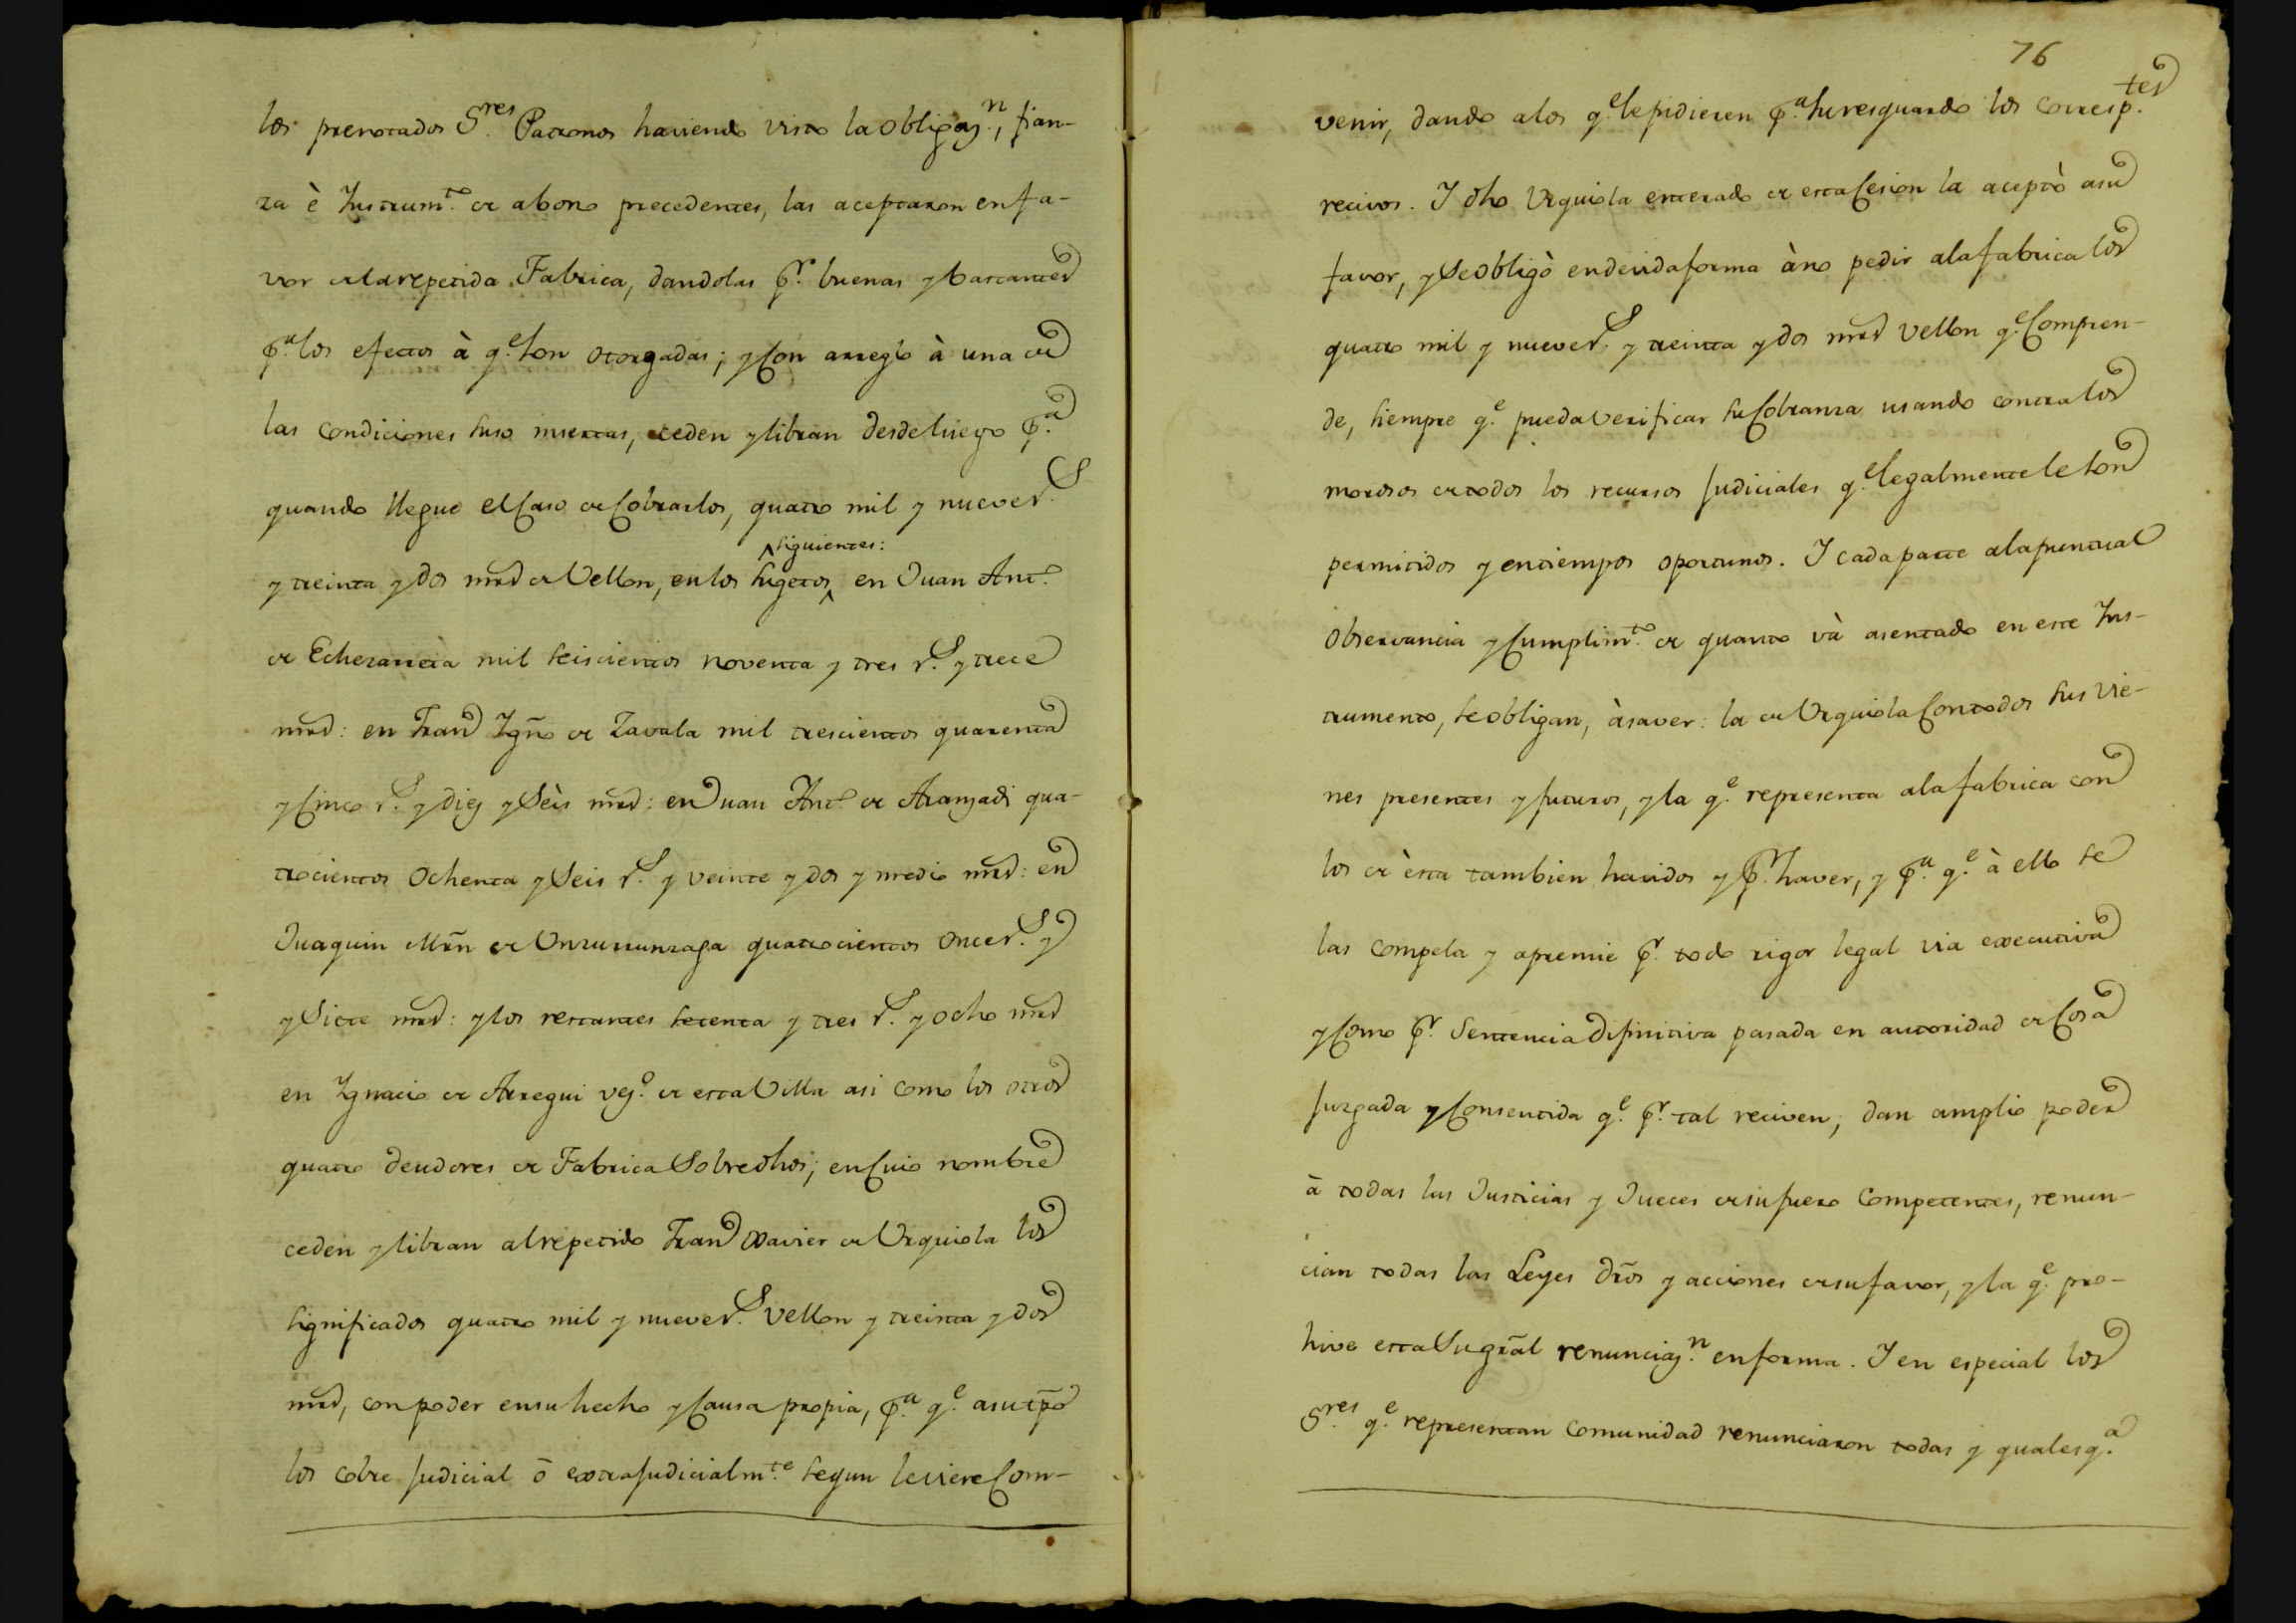 los prenotados S.res Patronos haviendo visto la obligaz.n, fian-
za è Instrum.to de abono precedentes, las aceptaron en fa-
vor de la repetida Fabrica, dandolas p.r buenas y bastantes
p.a los efectos à q.e son otorgadas; y con arreglo à una de
las condiciones suso insertas, ceden y libran desde luego p.a
quando llegue el caso de Cobrarlos, quatro mil y nueve r.s
siguientes:
y treinta y dos mrs de Vellon, en los sugetos en Juan Ant.o
de Echezarreta mil seiscientos noventa y tres r.s y trece
mrs: en Fran.co Ign.o de Zavala mil trescientos quarenta
y Cinco r.s y diez y Seis mrs: en Juan Ant.o de Aranzadi qua-
trocientos ochenta y Seis r.s y veinte y dos y medio mrs: en
Juaquin Mrn de Unzurrunzaga quatrocientos once r.s y
y Siete mrs: y los restantes setenta y tres r.s y ocho mrs
en Ignacio de Arregui vez.o de esta Villa asi como los otros
quatro deudores de Fabrica Sobredhos; en Cuio nombre
ceden y libran al repetido Fran.co Xavier de Urquiola los
significados quatro mil y nueve r.s Vellon y treinta y dos
mrs, con poder en su hecho y Causa propia, p.a q.e a su tpo
los cobre Judicial ô extrajudicialm.te segun le viere Com-
76
venir, dando a los q.e le pidieren p.a su resguardo los corresp.tes
recivos. I dho Urquiola enterado de esta Cesion la aceptò a su
favor, y Se obligò en devida forma à no pedir a la fabrica los
quatro mil y nueve r.s y treinta y dos mrs Vellon q.e Compren-
de, siempre q.e pueda Verificar su Cobranza usando contra los
morosos de todos los recursos Judiciales q.e legalmente le son
permitidos y en tiempos oportunos. I cada parte a la puntual
observancia y Cumplim.to de quanto và asentado en este Ins-
trumento, se obligan, à saver: la de Urquiola Con todos sus vie-
nes presentes y futuros, y la q.e representa a la fabrica con
los de èsta tambien havidos y p.r haver, y p.a q.e à ello se
las compela y apremie p.r todo rigor legal via executiva
y Como p.r Sentencia Difinitiva pasada en autoridad de Cosa
Juzgada y Consentida q.e p.r tal reciven, dan amplio poder
à todas las Justicias y Jueces de su fuero Competentes, renun-
cian todas las Leyes dros y acciones de su favor, y la q.e pro-
hive esta Su gral renunciaz.n en forma. I en especial los
S.res q.e representan comunidad renunciaron todas y qualesq.a